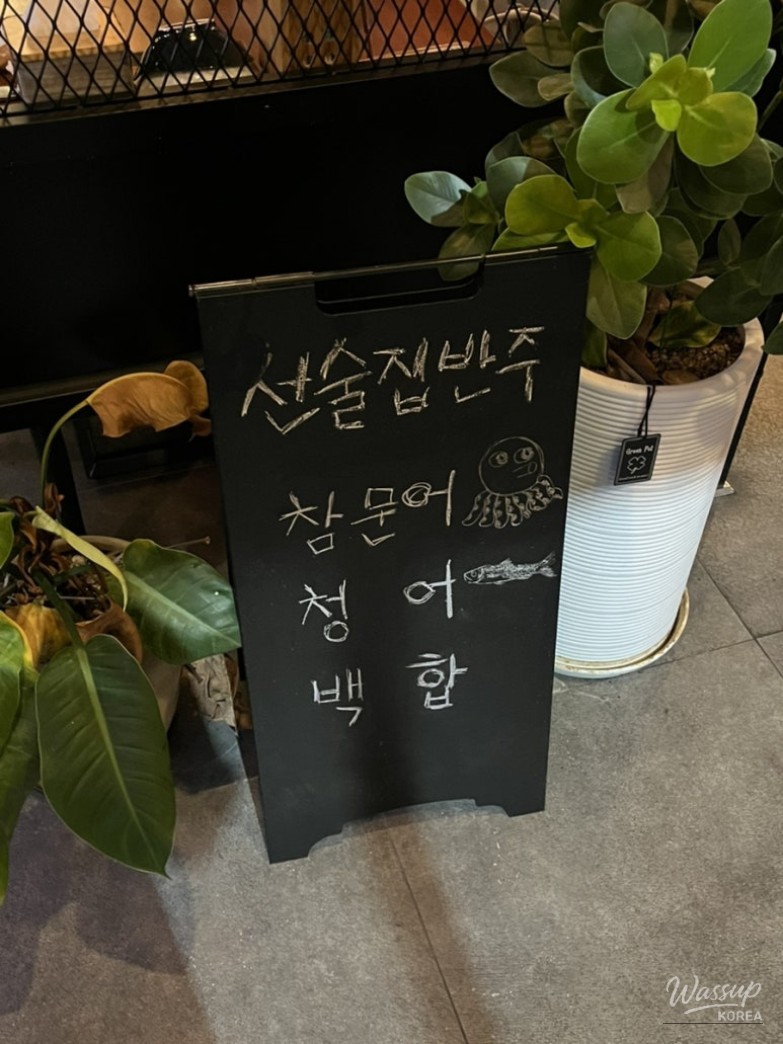 산술집반주
참문어
청어
백합
Green Pot
Wassup
KOREA